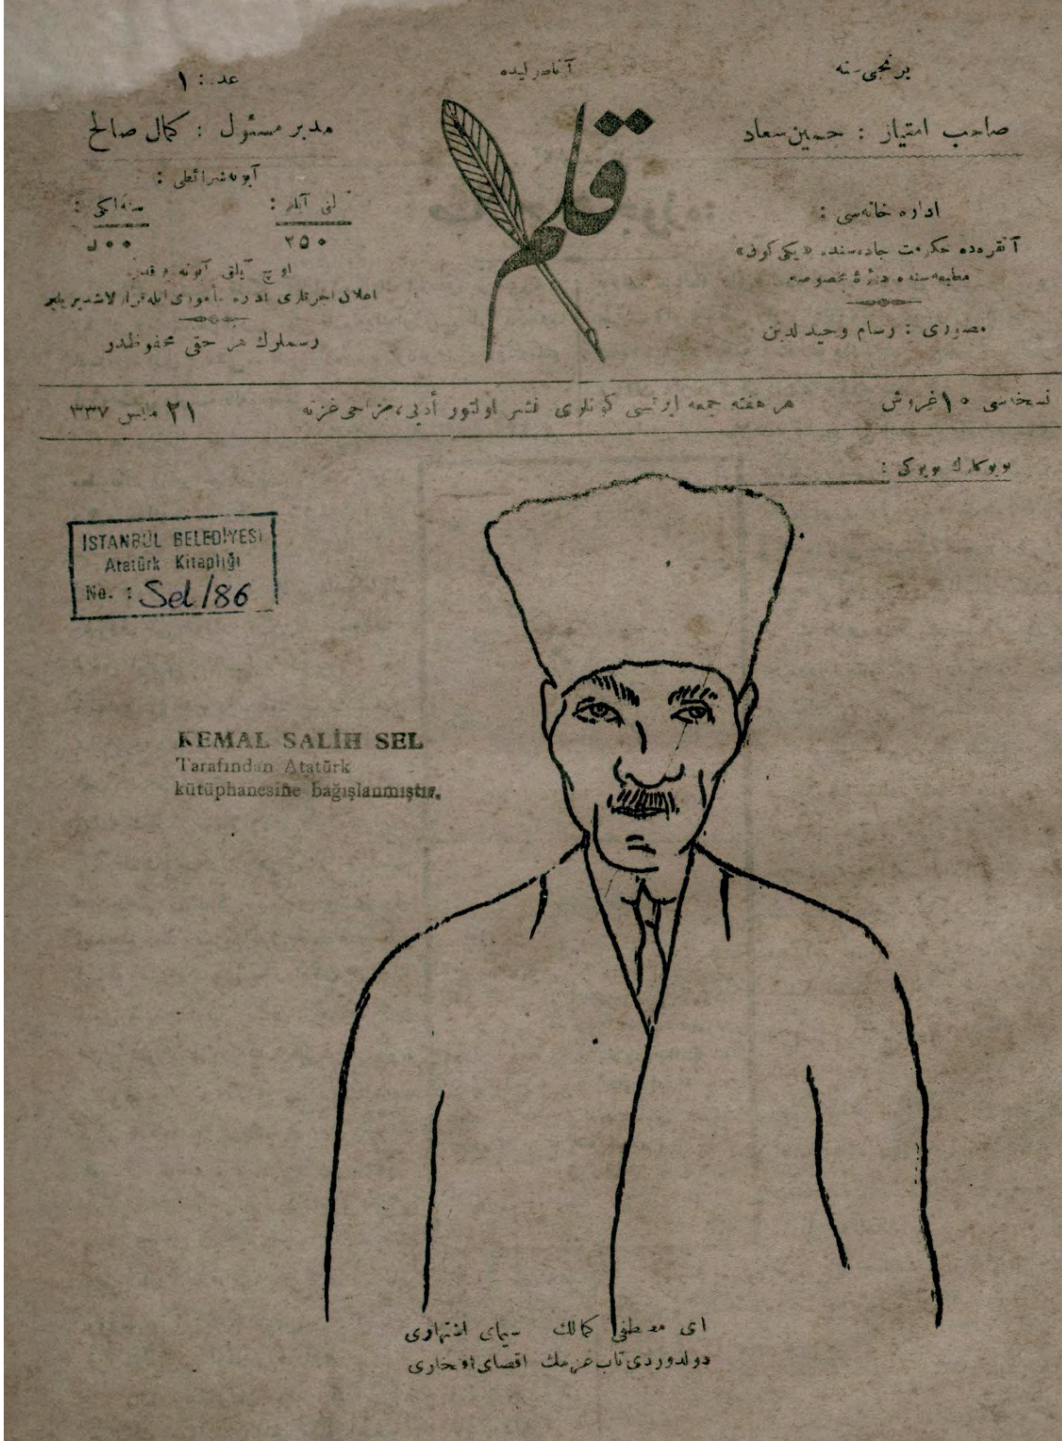 برنجی سنه
صاحب امتیاز : حسین سعاد
اداره خانه‌سی :
آنقره‌ده حكومت جاده‌سنده «یكی كون»
مطبعه‌سنده دائرهٔ مخصوصه
مصوری : رسام وحیدالدین
قلم
عدد : ١
مدیر مسئول : كمال صالح
آبونه شرائطی :
سنه‌لكی :
٥٠٠
٢٥٠
اوچ آیلق آبونه یوقدر
اعلان اجرتلری اداره مأموری ایله قرارلاشدیریلیر
رسملرك هر حقی محفوظدر
نسخه‌سی ١٠ غروش
هر هفته جمعه ایرتسی كونلری نشر اولنور أدبی، مزاحی غزته
٢١ مایس ٣٣٧
بویوكلرك بویوكی :
İSTANBUL BELEDİYESİ
Atatürk Kitaplığı
No. : Sel/86
KEMAL SALİH SEL
Tarafından Atatürk
kütüphanesine bağışlanmıştır.
ای مصطفی كمالك سیمای اشتهاری
دولدوردی تاب عزمك اقصای افتخاری